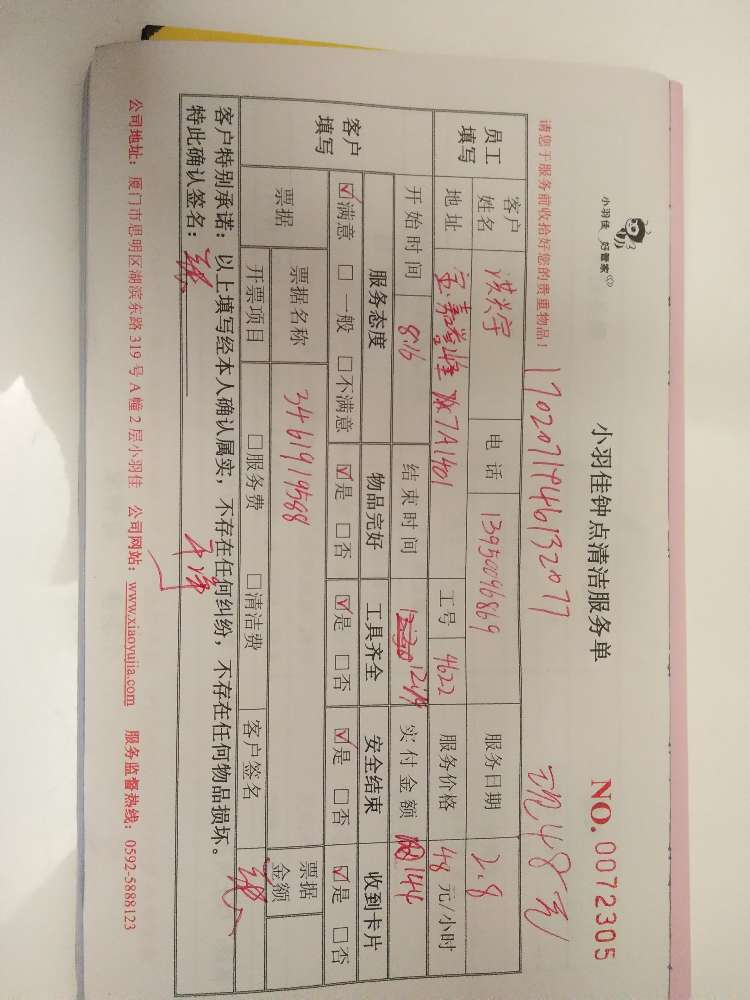 小羽佳 好管家
小羽佳钟点清洁服务单
NO. 0072305
请您于服务前收拾好您的贵重物品！
1702071946132077
现48元
员工填写 客户姓名 洪兴宇 电话 13950096869 服务日期 2.8
地址 7A1401 工号 4622 服务价格 48 元/小时
客户填写 开始时间 8:16 结束时间 实付金额 144
服务态度 物品完好 工具齐全 安全结束 收到卡片
☑满意 □一般 □不满意 ☑是 □否 ☑是 □否 ☑是 □否 ☑是 □否
票据 票据名称 3461919588 票据金额
开票项目 □服务费 □清洁费 客户签名
客户特别承诺：以上填写经本人确认属实，不存在任何纠纷，不存在任何物品损坏。
特此确认签名：
公司地址：厦门市思明区湖滨东路 319 号 A 幢 2 层小羽佳 公司网站：www.xiaoyujia.com 服务监督热线：0592-5888123